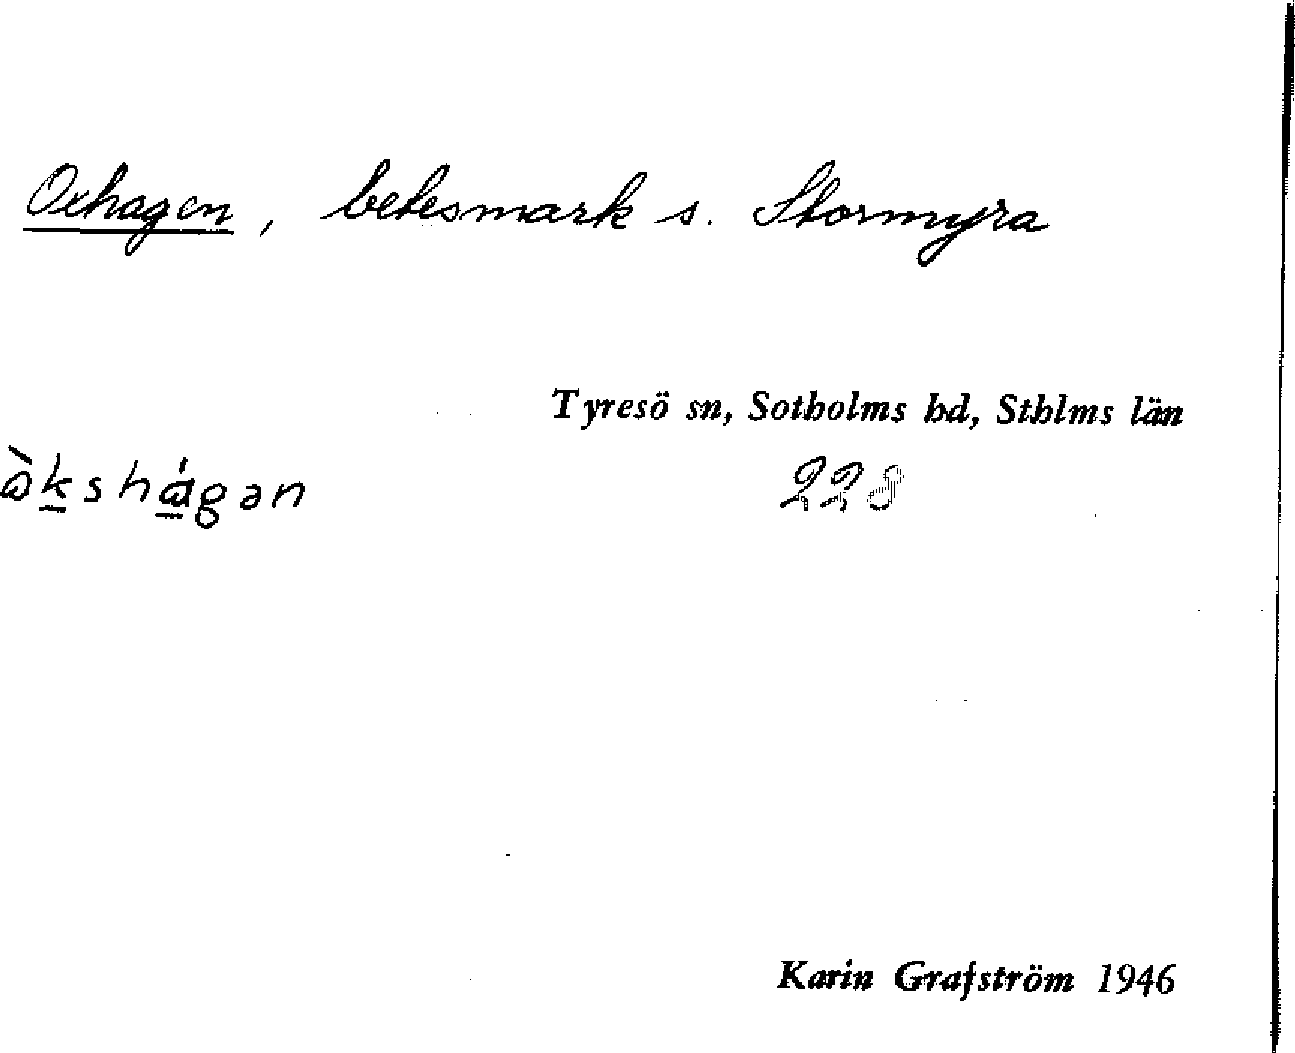 Oxhagen, betesmark s. Stormyra
Tyresö sn, Sotholms hd, Sthlms län
228
Karin Grafström 1946